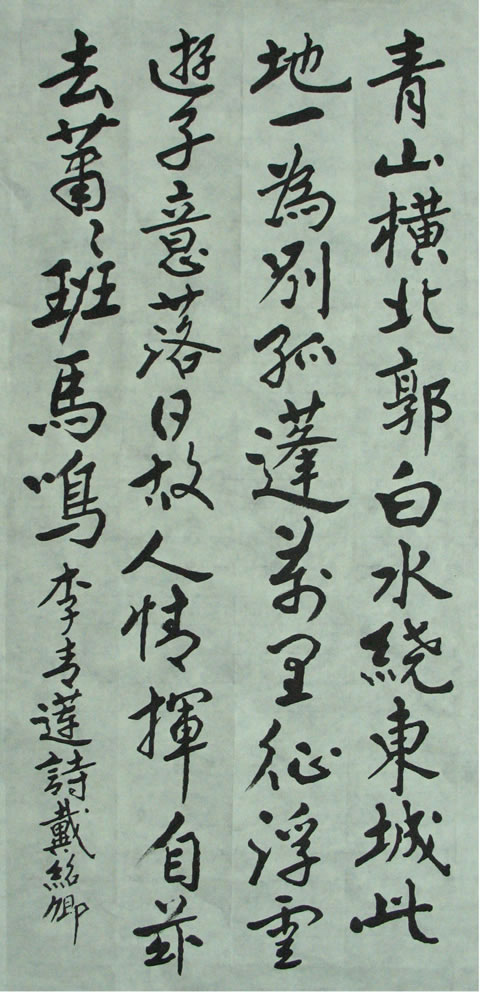 青山橫北郭白水繞東城此
地一為別孤蓬萬里征浮雲
遊子意落日故人情揮自茲
去蕭〻班馬鳴 李青蓮詩戴紹卿